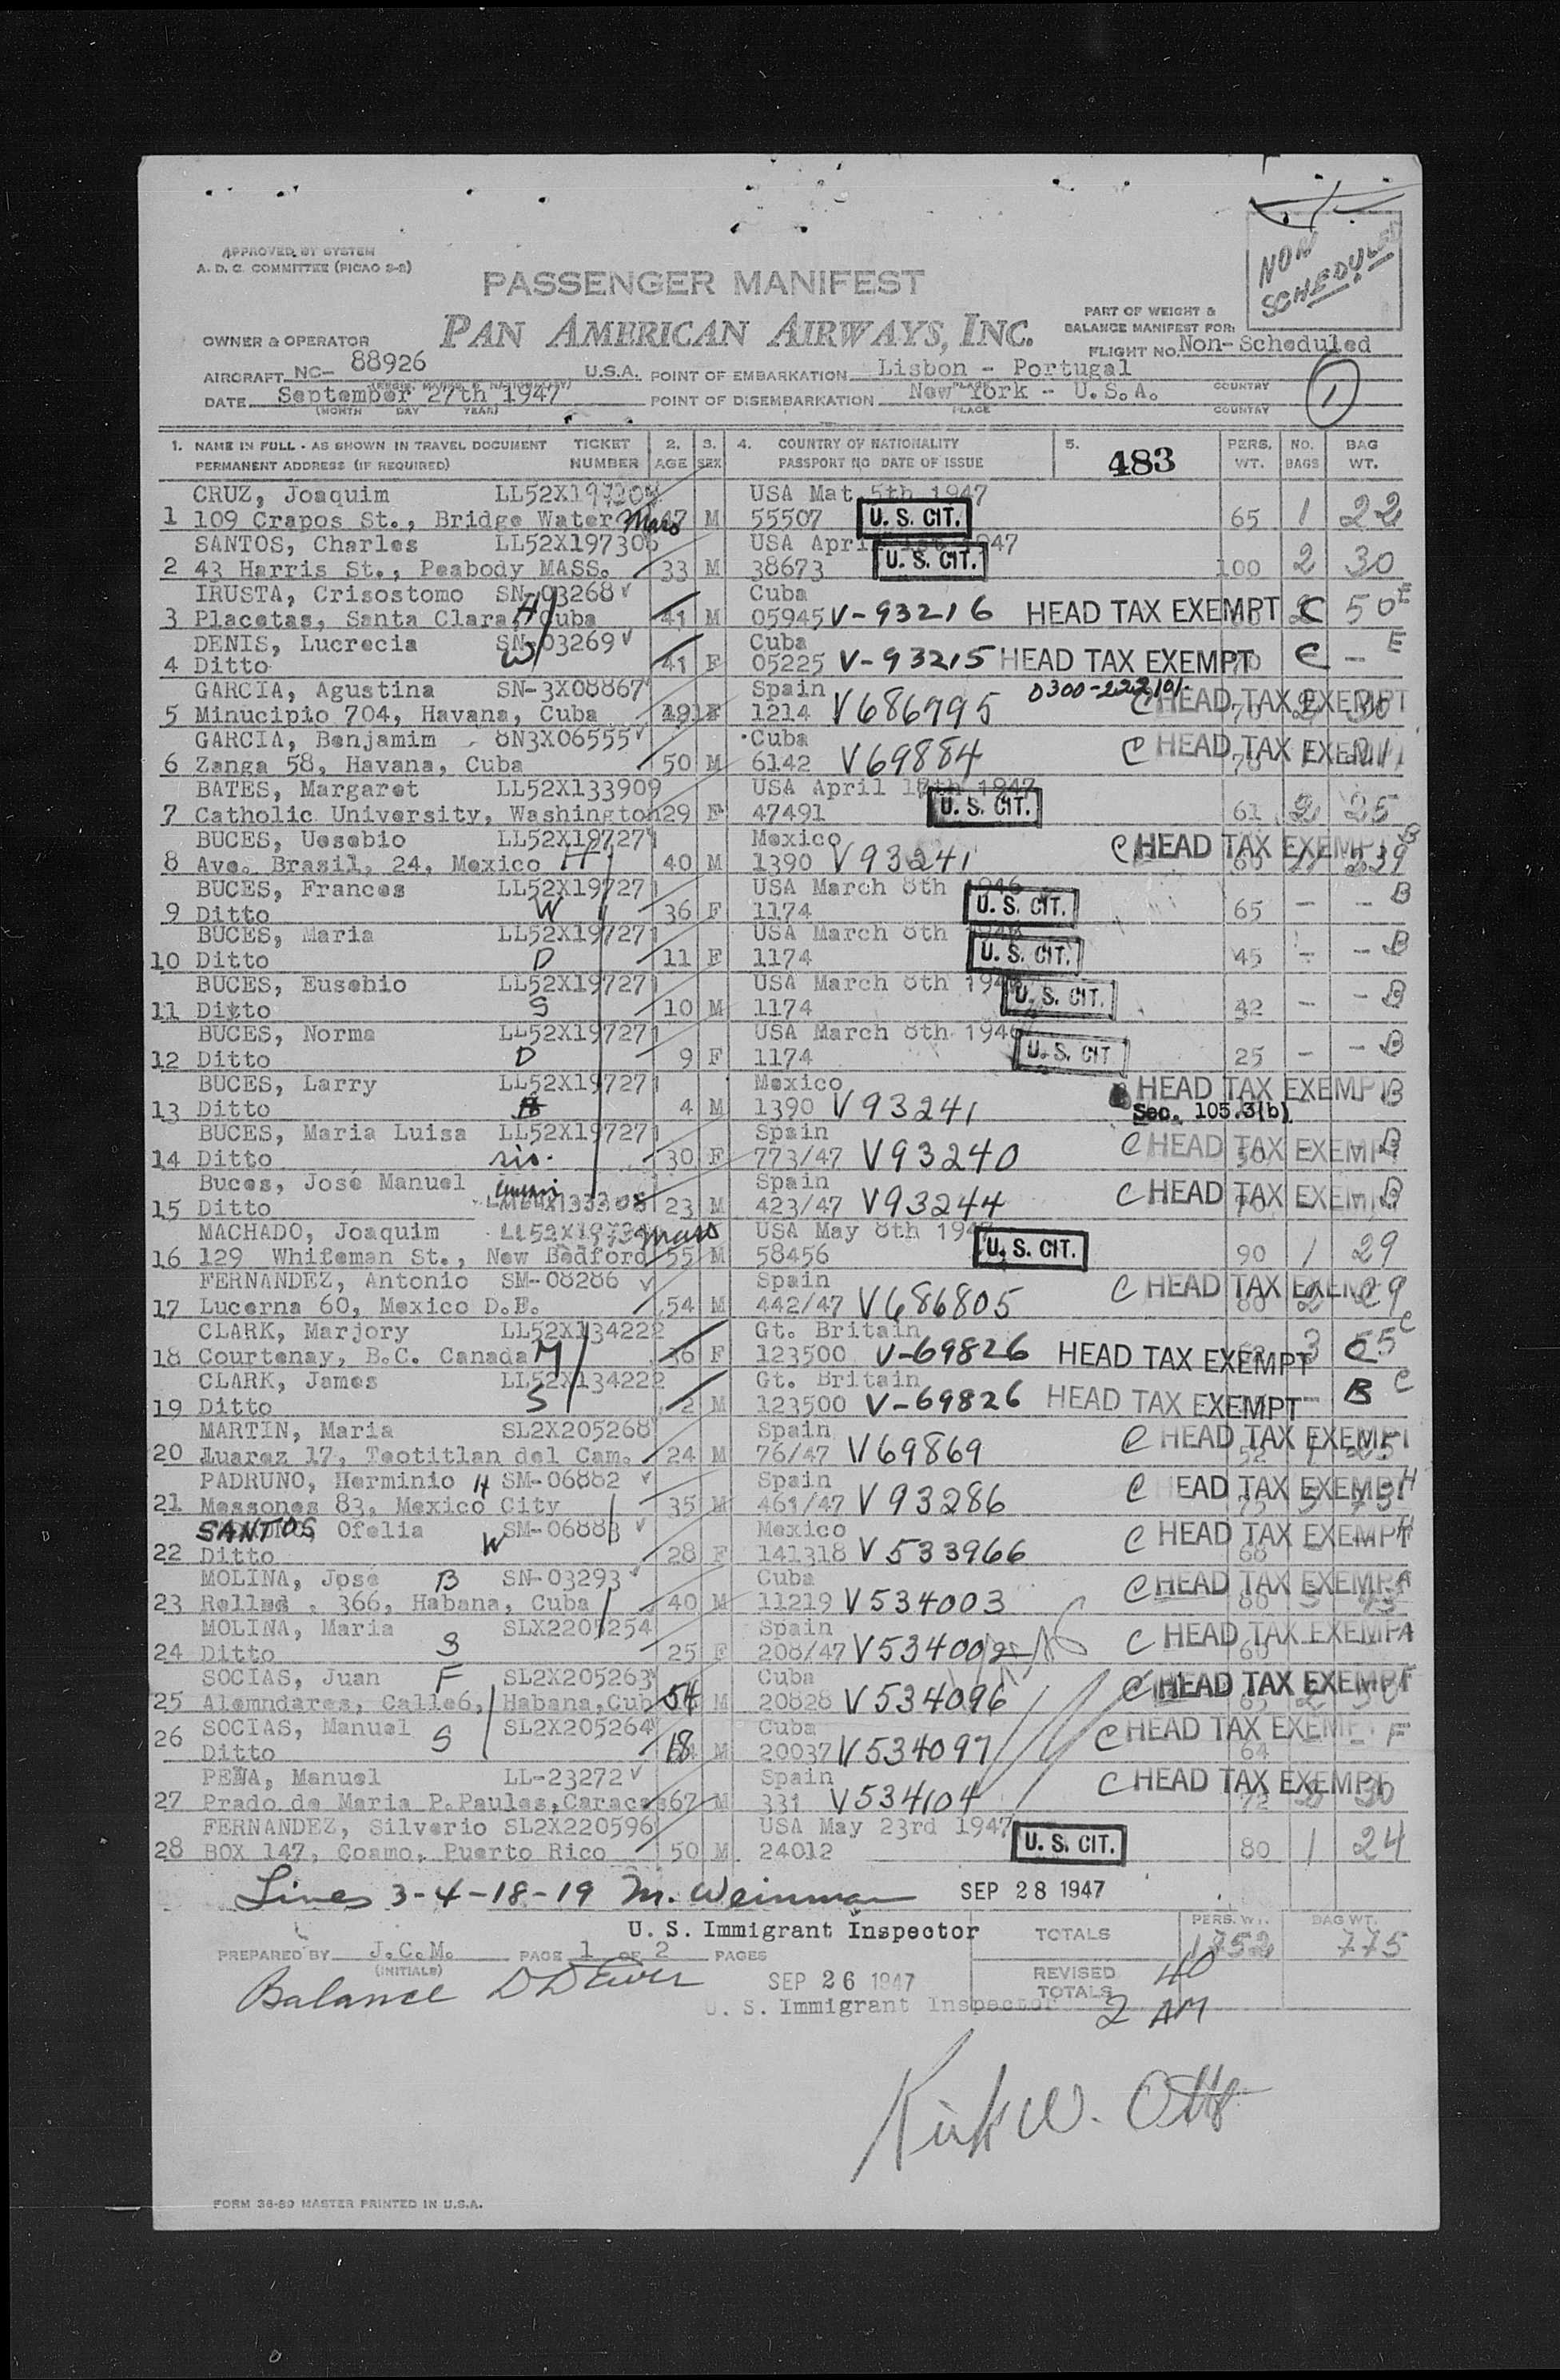 APPROVED BY SYSTEM
A. D. C. COMMITTEE (PICAO S-2)
NON SCHEDULED
PASSENGER MANIFEST
PAN AMERICAN AIRWAYS, INC.
PART OF WEIGHT &
BALANCE MANIFEST FOR:
OWNER & OPERATOR
FLIGHT NO. Non-Scheduled
AIRCRAFT NC- 88926 U.S.A. POINT OF EMBARKATION Lisbon - Portugal
DATE September 27th 1947 POINT OF DISEMBARKATION New York - U.S.A. 1
(MONTH DAY YEAR) PLACE COUNTRY
1. NAME IN FULL - AS SHOWN IN TRAVEL DOCUMENT TICKET 2. 3. 4. COUNTRY OF NATIONALITY 5. 483 PERS. NO. BAG
PERMANENT ADDRESS (IF REQUIRED) NUMBER AGE SEX PASSPORT NO DATE OF ISSUE WT. BAGS WT.
CRUZ, Joaquim USA Mat 5th 1947
1 109 Crapos St., Bridge Water Mass 47 M 55507 U. S. CIT. 65 1 22
SANTOS, Charles LL52X197306 USA 1947
2 43 Harris St., Peabody MASS. 33 M 38673 U. S. CIT. 100 2 30
IRUSTA, Crisostomo SN-03268 Cuba
3 Placetas, Santa Clara, Cuba H 41 M 05945 V-93216 HEAD TAX EXEMPT C 50 E
DENIS, Lucrecia SN-03269 Cuba E
4 Ditto W 41 F 05225 V-93215 HEAD TAX EXEMPT C -
GARCIA, Agustina SN-3X08867 Spain 0300-222101- C HEAD TAX EXEMPT
5 Minucipio 704, Havana, Cuba F 1214 V686795
GARCIA, Benjamim 8N3X06555 Cuba C HEAD TAX EXEMPT
6 Zanga 58, Havana, Cuba 50 M 6142 V69884
BATES, Margaret LL52X133909 USA April 1947
7 Catholic University, Washington 29 F 47491 U. S. CIT. 61 2 25
BUCES, Uesebio LL52X197271 Mexico C HEAD TAX EXEMPT B
8 Ave. Brasil, 24, Mexico H 40 M 1390 V93241
BUCES, Frances LL52X197271 USA March 8th 1946 B
9 Ditto W 36 F 1174 U. S. CIT. 65 - -
BUCES, Maria LL52X197271 USA March 8th
10 Ditto D 11 F 1174 U. S. CIT. 45 - - B
BUCES, Eusebio LL52X197271 USA March 8th
11 Ditto S 10 M 1174 U. S. CIT. 42 - - B
BUCES, Norma LL52X197271 USA March 8th 1946
12 Ditto D 9 F 1174 U. S. CIT 25 - - B
BUCES, Larry LL52X197271 Mexico HEAD TAX EXEMPT B
13 Ditto 4 M 1390 V93241 Sec. 105.3(b)
BUCES, Maria Luisa LL52X197271 Spain C HEAD TAX EXEMPT B
14 Ditto sis. 30 F 773/47 V93240
Buces, José Manuel Spain C HEAD TAX EXEMPT B
15 Ditto 23 M 423/47 V93244
MACHADO, Joaquim Mass USA May 8th
16 129 Whiteman St., New Bedford 55 M 58456 U. S. CIT. 90 1 29
FERNANDEZ, Antonio SM-08286 Spain C HEAD TAX EXEMPT
17 Lucerna 60, Mexico D.F. 54 M 442/47 V686805
CLARK, Marjory LL52X134222 Gt. Britain C
18 Courtenay, B.C. Canada M 36 F 123500 V-69826 HEAD TAX EXEMPT 3 55 C
CLARK, James LL52X134222 Gt. Britain C
19 Ditto S 2 M 123500 V-69826 HEAD TAX EXEMPT - B
MARTIN, Maria SL2X205268 Spain C HEAD TAX EXEMPT
20 Luarez 17, Teotitlan del Cam. 24 M 76/47 V69869
PADRUNO, Herminio H SM-06882 Spain C HEAD TAX EXEMPT H
21 Messones 83, Mexico City 35 M 461/47 V93286
SANTOS, Ofelia W SM-06883 Mexico C HEAD TAX EXEMPT H
22 Ditto 28 F 141318 V533966
MOLINA, José B SN-03293 Cuba C HEAD TAX EXEMPT A
23 366, Habana, Cuba 40 M 11219 V534003
MOLINA, Maria S SLX2205254 Spain C HEAD TAX EXEMPT A
24 Ditto 25 F 208/47 V534002
SOCIAS, Juan F SL2X205263 Cuba C HEAD TAX EXEMPT F
25 Alemndares, Calle6, Habana, Cub 54 M 20828 V534096
26 SOCIAS, Manuel S SL2X205264 Cuba C HEAD TAX EXEMPT
Ditto 18 M 20037 V534097 64 - F
PEÑA, Manuel LL-23272 Spain C HEAD TAX EXEMPT
27 Prado de Maria P.Paules, Caracas 67 M 331 V534104 72 30
FERNANDEZ, Silverio SL2X220596 USA May 23rd 1947
28 BOX 147, Coamo, Puerto Rico 50 M 24012 U. S. CIT. 80 1 24
Lines 3-4-18-19 M. Weinman SEP 28 1947
U. S. Immigrant Inspector TOTALS PERS. WT. 1752 BAG WT. 775
PREPARED BY J.C.M. PAGE 1 OF 2 PAGES
(INITIALS)
Balance SEP 26 1947 REVISED TOTALS 40
U. S. Immigrant Inspector 2 AM
Kirk W. Otto
FORM 36-80 MASTER PRINTED IN U.S.A.